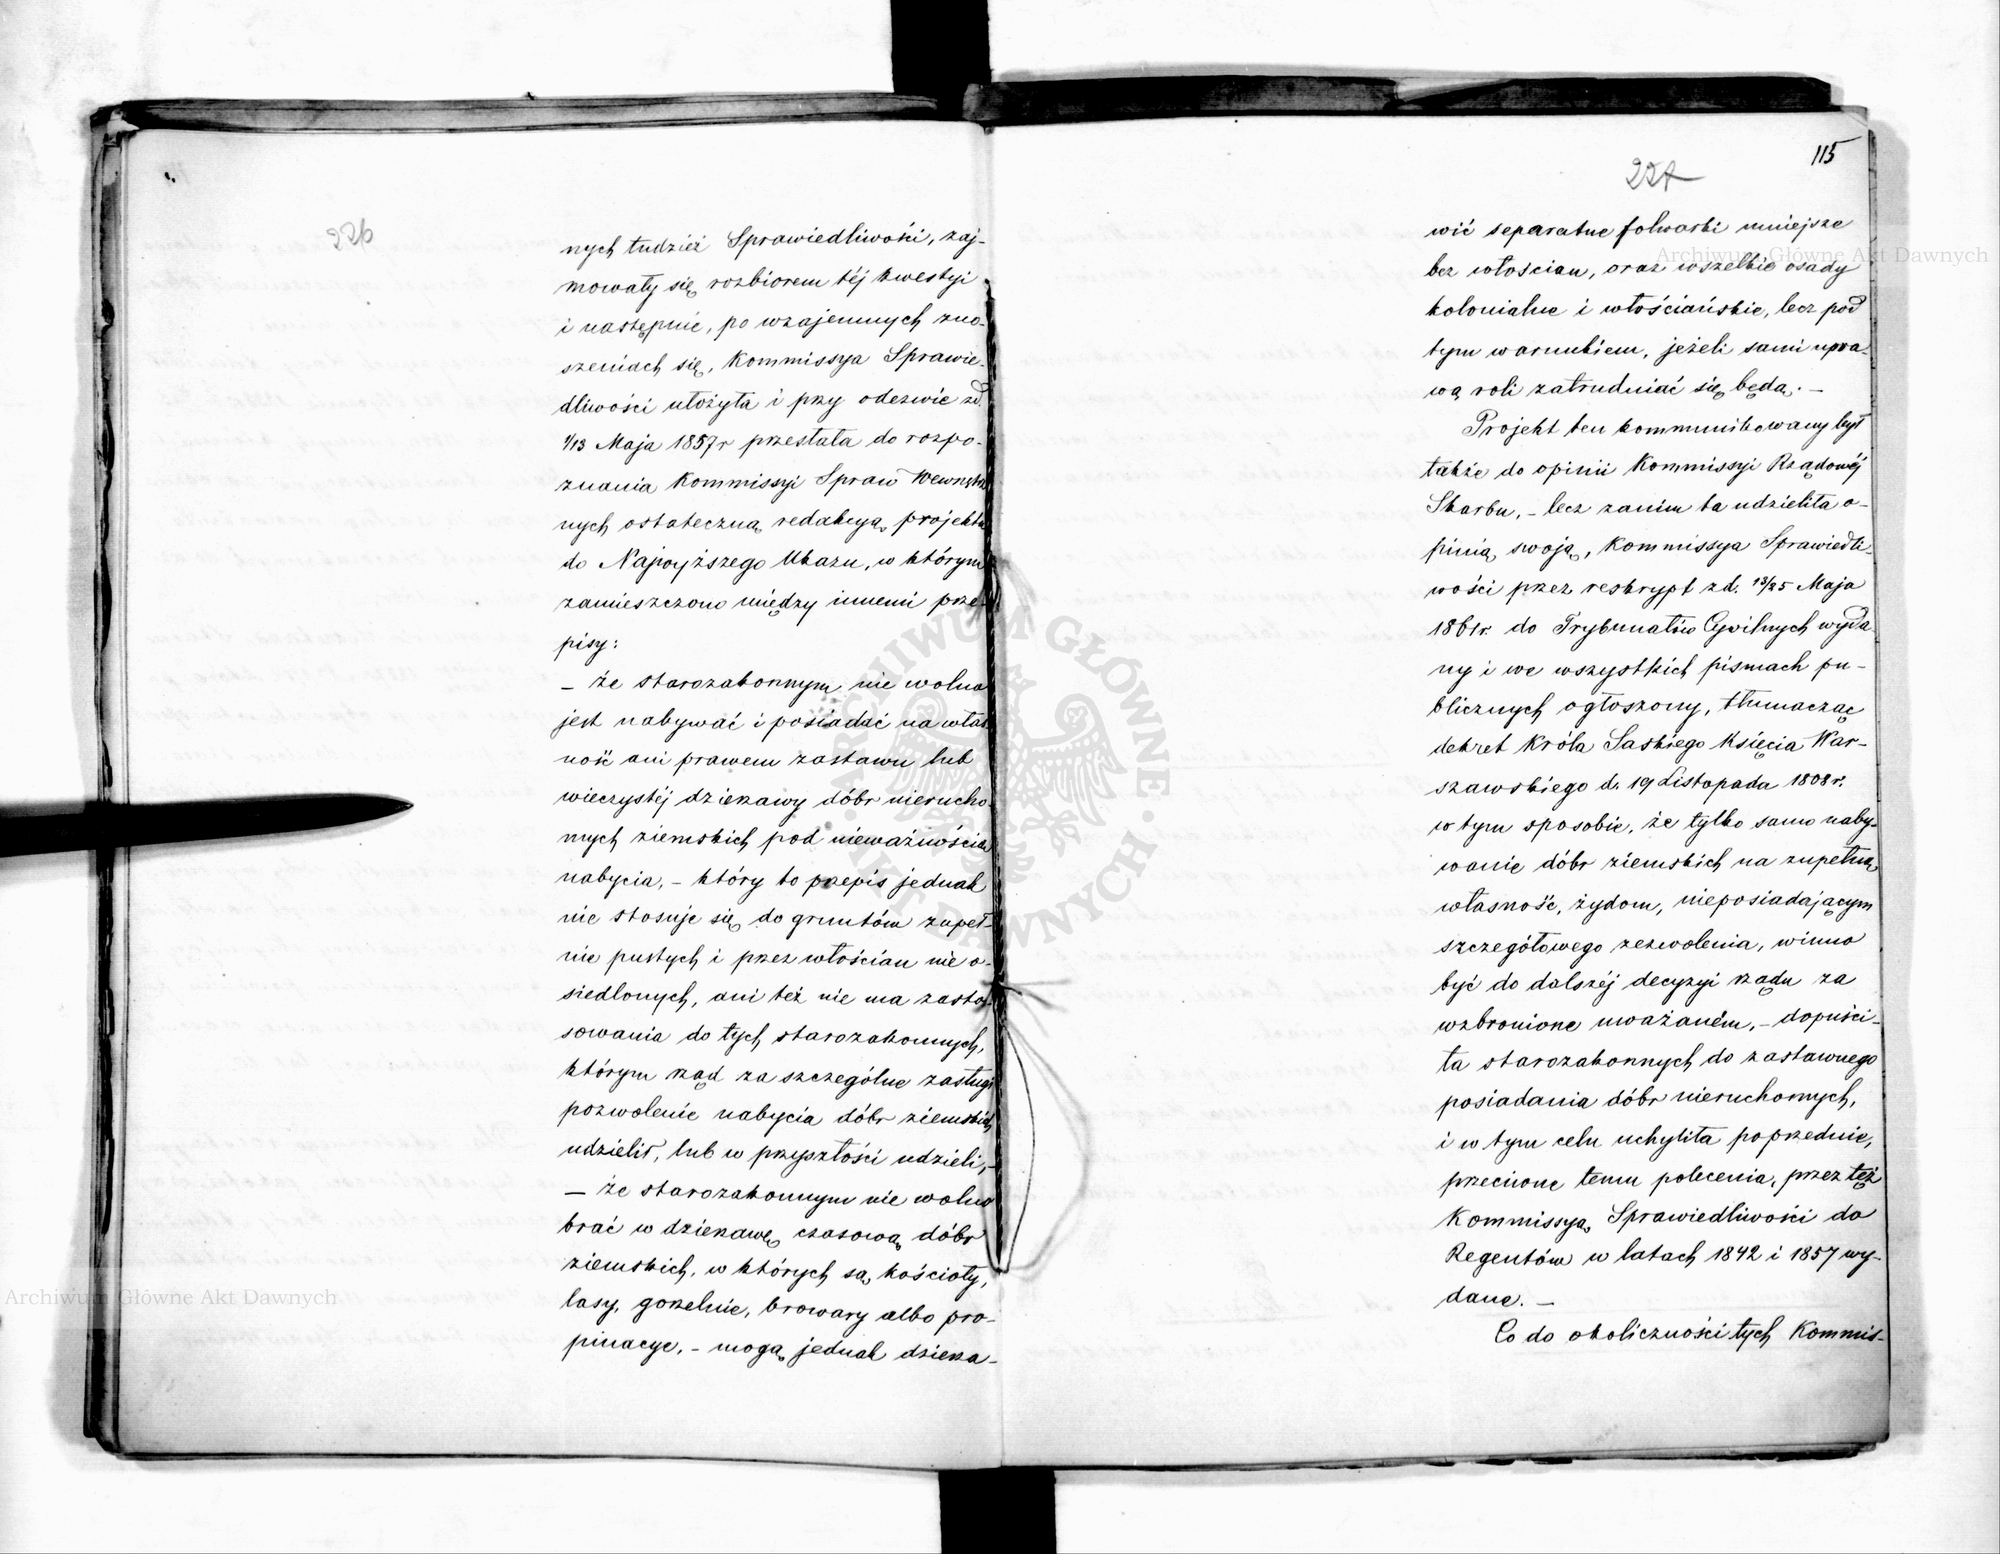 226
nych tudzież Sprawiedliwości, zaj-
mowały się rozbiorem téj kwestyi
i następnie, po wzajemnych zno-
szeniach się, Kommissya Sprawie-
dliwości ułożyła i przy odezwie zd.
1/13 Maja 1857r przesłała do rozpo-
znania Kommissyi Spraw Wewnętrz
nych ostateczną redakcyą projektu
do Najwyższego Ukazu, w którym
zamieszczono między innemi prze-
pisy:
– że starozakonnym nie wolno
jest nabywać i posiadać na włas
ność ani prawem zastawu lub
wieczystéj dzierżawy dóbr nierucho-
mych ziemskich pod nieważnością
nabycia, – który to przepis jednak
nie stosuje się do gruntów zupeł-
nie pustych i przez włościan nie o-
siedlonych, ani też nie ma zasto-
sowania do tych starozakonnych,
którym rząd za szczególne zasługi
pozwolenie nabycia dóbr ziemskich
udzielił, lub w przyszłości udzieli,–
– że starozakonnym nie wolno
brać w dzierżawę czasową dóbr
ziemskich, w których są kościoły,
lasy, gorzelnie, browary albo pro-
pinacye, – mogą jednak dzierża-
115
227
wić separatne folwarki mniejsze
bez włościan, oraz wszelkie osady
kolonialne i włościańskie, lecz pod
tym warunkiem, jeżeli sami upra-
wą roli zatrudniać się będą. –
Projekt ten kommunikowany był
także do opinii Kommissyi Rządowéj
Skarbu, – lecz zanim ta udzieliła o-
pinią swoją, Kommissya Sprawiedli-
wości przez reskrypt zd. 13/25 Maja
1861r. do Trybunałów Cywilnych wyda
ny i we wszystkich pismach pu-
blicznych ogłoszony, tłumacząc
dekret Króla Saskiego Księcia War-
szawskiego d. 19 Listopada 1808r.
w tym sposobie, że tylko samo naby-
wanie dóbr ziemskich na zupełną
własność, żydom, nieposiadającym
szczegółowego zezwolenia, winno
być do dalszéj decyzyi rządu za
wzbronione uważaném, – dopuści-
ła starozakonnych do zastawnego
posiadania dóbr nieruchomych,
i w tym celu uchyliła poprzednie,
przeciwne temu polecenia, przez też
Kommissyą Sprawiedliwości do
Regentów w latach 1842 i 1857 wy-
dane. –
Co do okoliczności tych Kommis-
Archiwum Główne Akt Dawnych
Archiwum Główne Akt Dawnych
ARCHIWUM GŁÓWNE AKT DAWNYCH